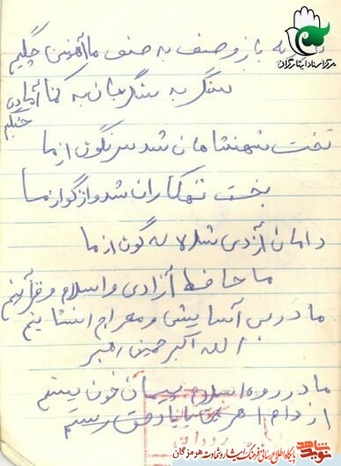 مرکز اسناد ایثارگران
به بازو صف به صف ما آهنین چنگیم
سنگر به سنگر جان به کف آماده
جنگیم
تخت شهنشاهان شد سرنگون از ما
بخت ستمکاران شد واژگون از ما
دامان آزادی شد لاله گون از ما
ما حافظ آزادی و اسلام و قرآنیم
ما در پس آسایش و معراج انسانیم
الله اکبر خمینی رهبر
ما در ره اسلام پیمان خون بستیم
از دام اهریمن با یاد حق رستیم
نوید شاهد
پایگاه اطلاع رسانی فرهنگ ایثار و شهادت هرمزگان